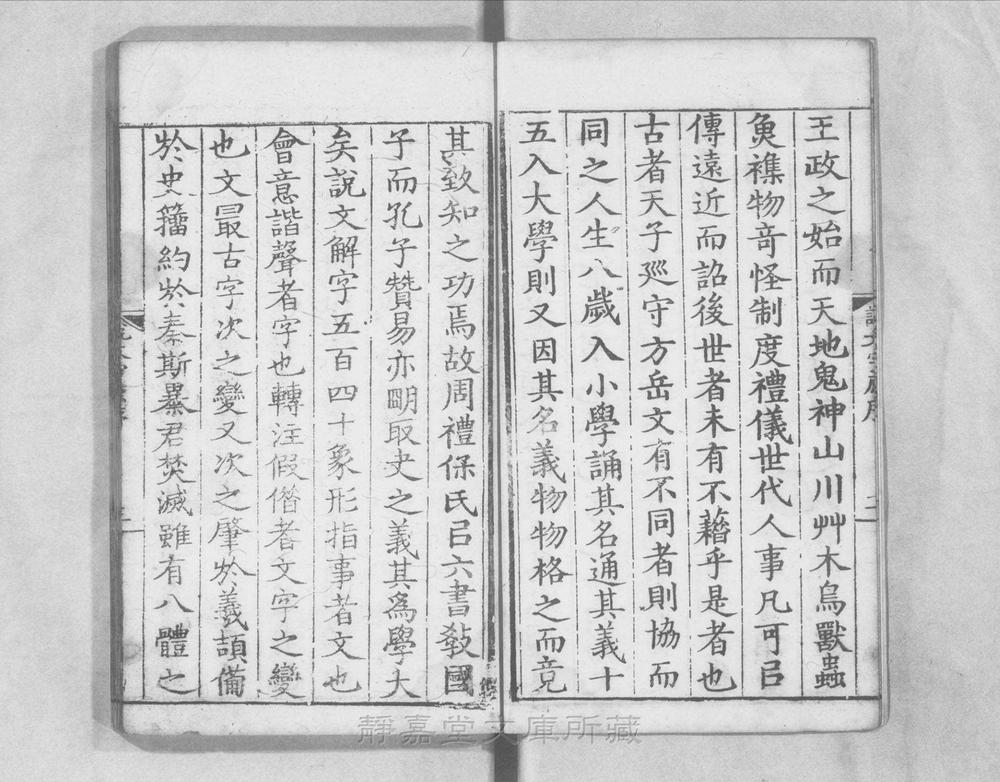 王政之始而天地鬼神山川艸木鳥獸蟲
魚襍物奇怪制度禮儀世代人事凡可㠯
傳遠近而詔後世者未有不藉乎是者也
古者天子巡守方岳文有不同者則協而
同之人生八歲入小學誦其名通其義十
五入大學則又因其名義物物格之而竟
其致知之功焉故周禮保氏㠯六書敎國
子而孔子贊易亦朙取史之義其爲學大
矣說文解字五百四十象形指事者文也
會意諧聲者字也轉注假借者文字之變
也文冣古字次之變又次之肇於羲頡備
於史籒約於秦斯暴君焚滅雖有八體之
靜嘉堂文庫所藏